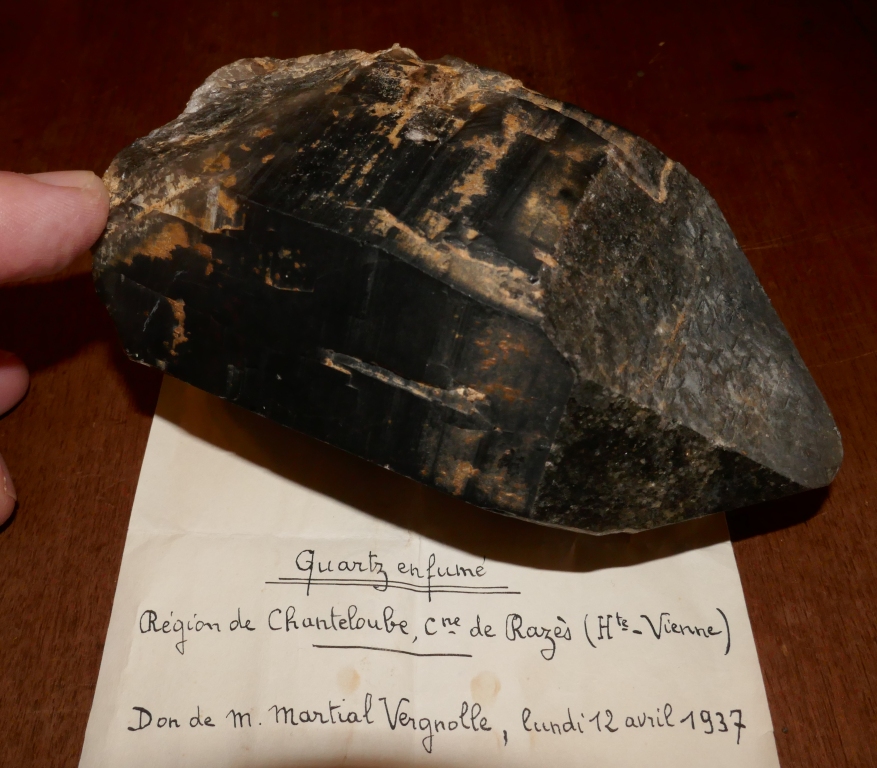 Quartz enfumé
Région de Chanteloube, cne de Razès (Hte-Vienne)
Don de M. Martial Vergnolle, lundi 12 avril 1937